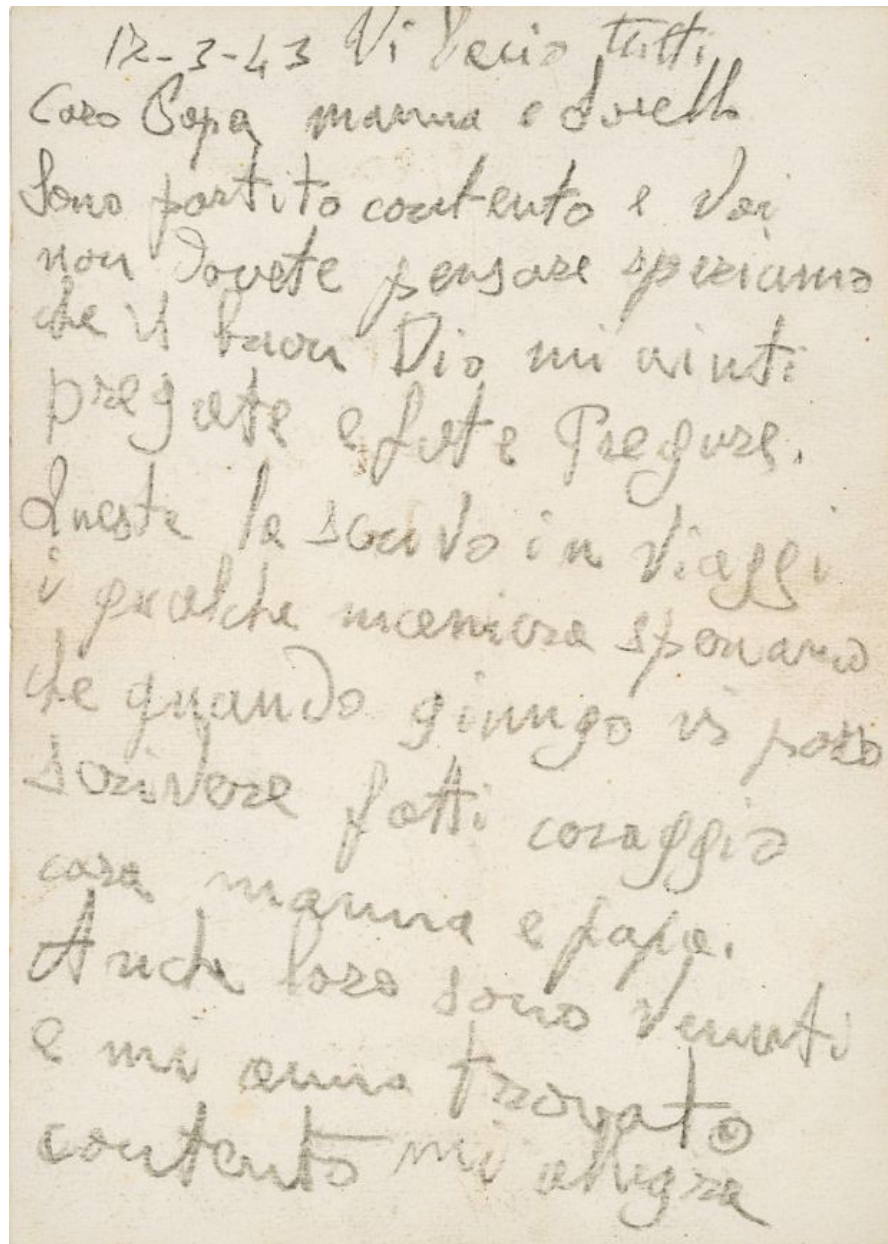 12-3-43 Vi Bacio tutti
Caro Papa mamma e Sorella
Sono partito contento e Voi
non Dovete pensare speriamo
che il buon Dio mi aiuti
pregate e fate Pregare.
Questa la scrivo in Viaggi
i qualche maniera speriamo
che quando giungo vi posso
scrivere fatti coraggio
cara mamma e papa.
Anche loro sono Venuti
e mi anno trovato
contento mi allegra